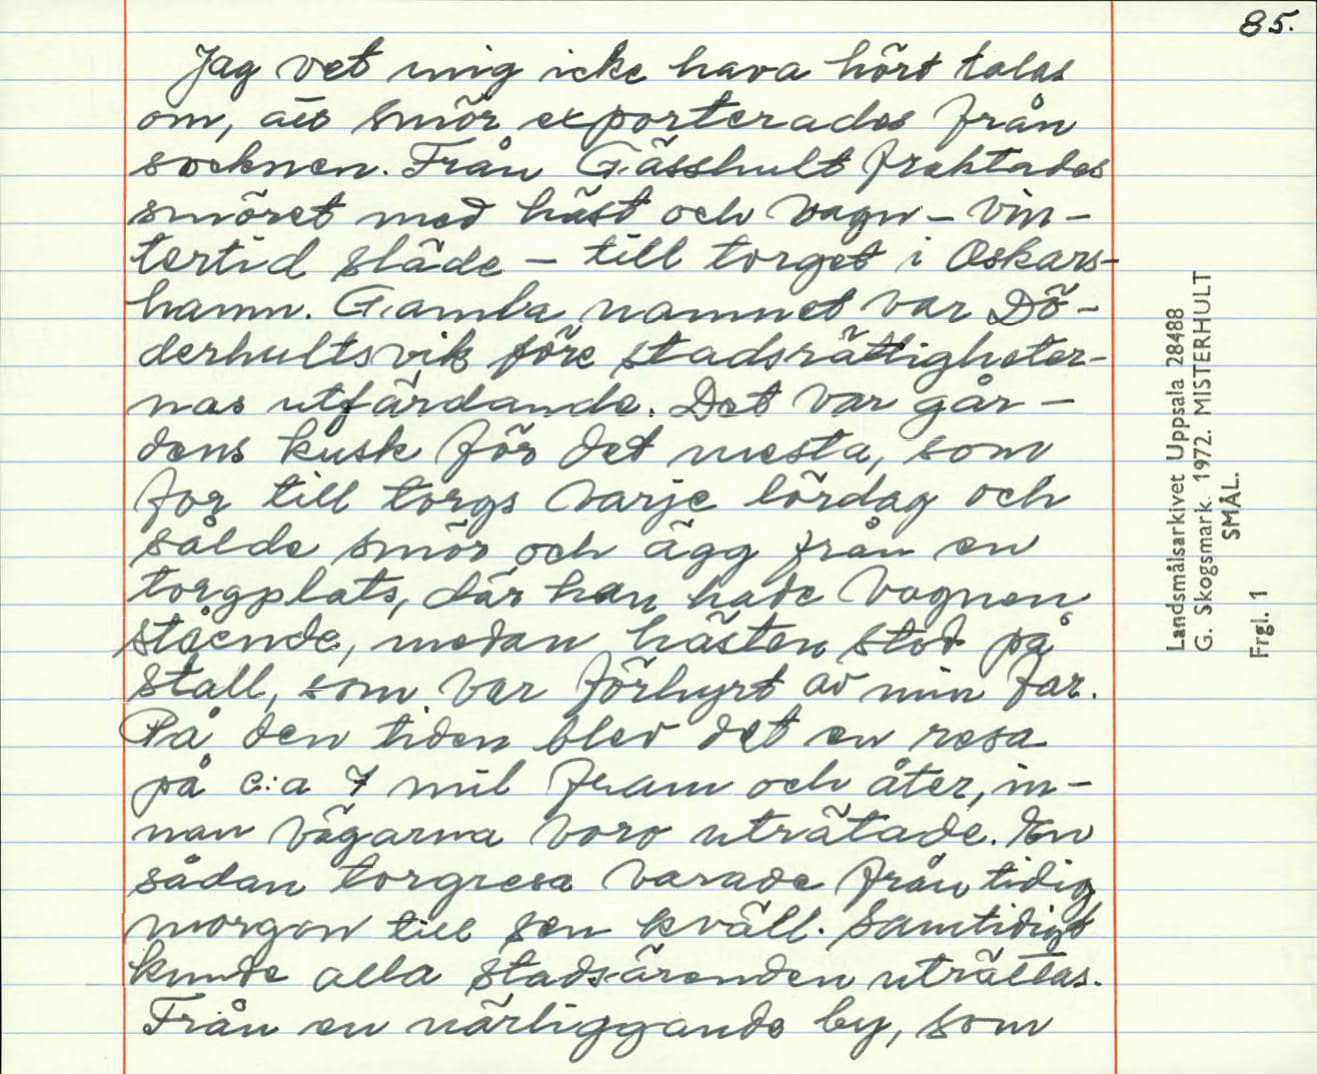 85.
Jag vet mig icke hava hört talas
om, att smör exporterades från
socknen. Från Gässhult fraktades
smöret med häst och vagn – vin-
tertid släde – till torget i Oskars-
hamn. Gamla namnet var Dö-
derhultsvik före stadsrättigheter-
nas utfärdande. Det var går-
dens kusk för det mesta, som
for till torgs varje lördag och
sålde smör och ägg från en
torgplats, där han hade vagnen
stående, medan hästen stod på
stall, som var förhyrt av min far.
På den tiden blev det en resa
på c:a 7 mil fram och åter, in-
nan vägarna voro uträtade. En
sådan torgresa varade från tidig
morgon till sen kväll. Samtidigt
kunde alla stadsärenden uträttas.
Från en närliggande by, som
Landsmålsarkivet Uppsala 28488
G. Skogsmark. 1972. MISTERHULT
SMÅL.
Frgl. 1